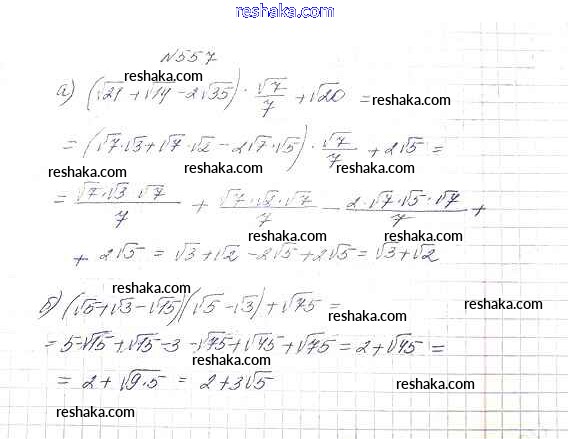 reshaka.com
№557
reshaka.com
а) (√21 + √14 − 2√35) · √7/7 + √20 =
reshaka.com
= (√7·√3 + √7·√2 − 2√7·√5) · √7/7 + 2√5 =
reshaka.com reshaka.com reshaka.com
= √7·√3·√7/7 + √7·√2·√7/7 − 2·√7·√5·√7/7 +
reshaka.com reshaka.com
+ 2√5 = √3 + √2 − 2√5 + 2√5 = √3 + √2
б) (√5 + √3 − √15)(√5 − √3) + √75 =
reshaka.com reshaka.com
= 5 − √15 + √15 − 3 − √75 + √45 + √75 = 2 + √45 =
reshaka.com
= 2 + √9·5 = 2 + 3√5
reshaka.com
reshaka.com
reshaka.com